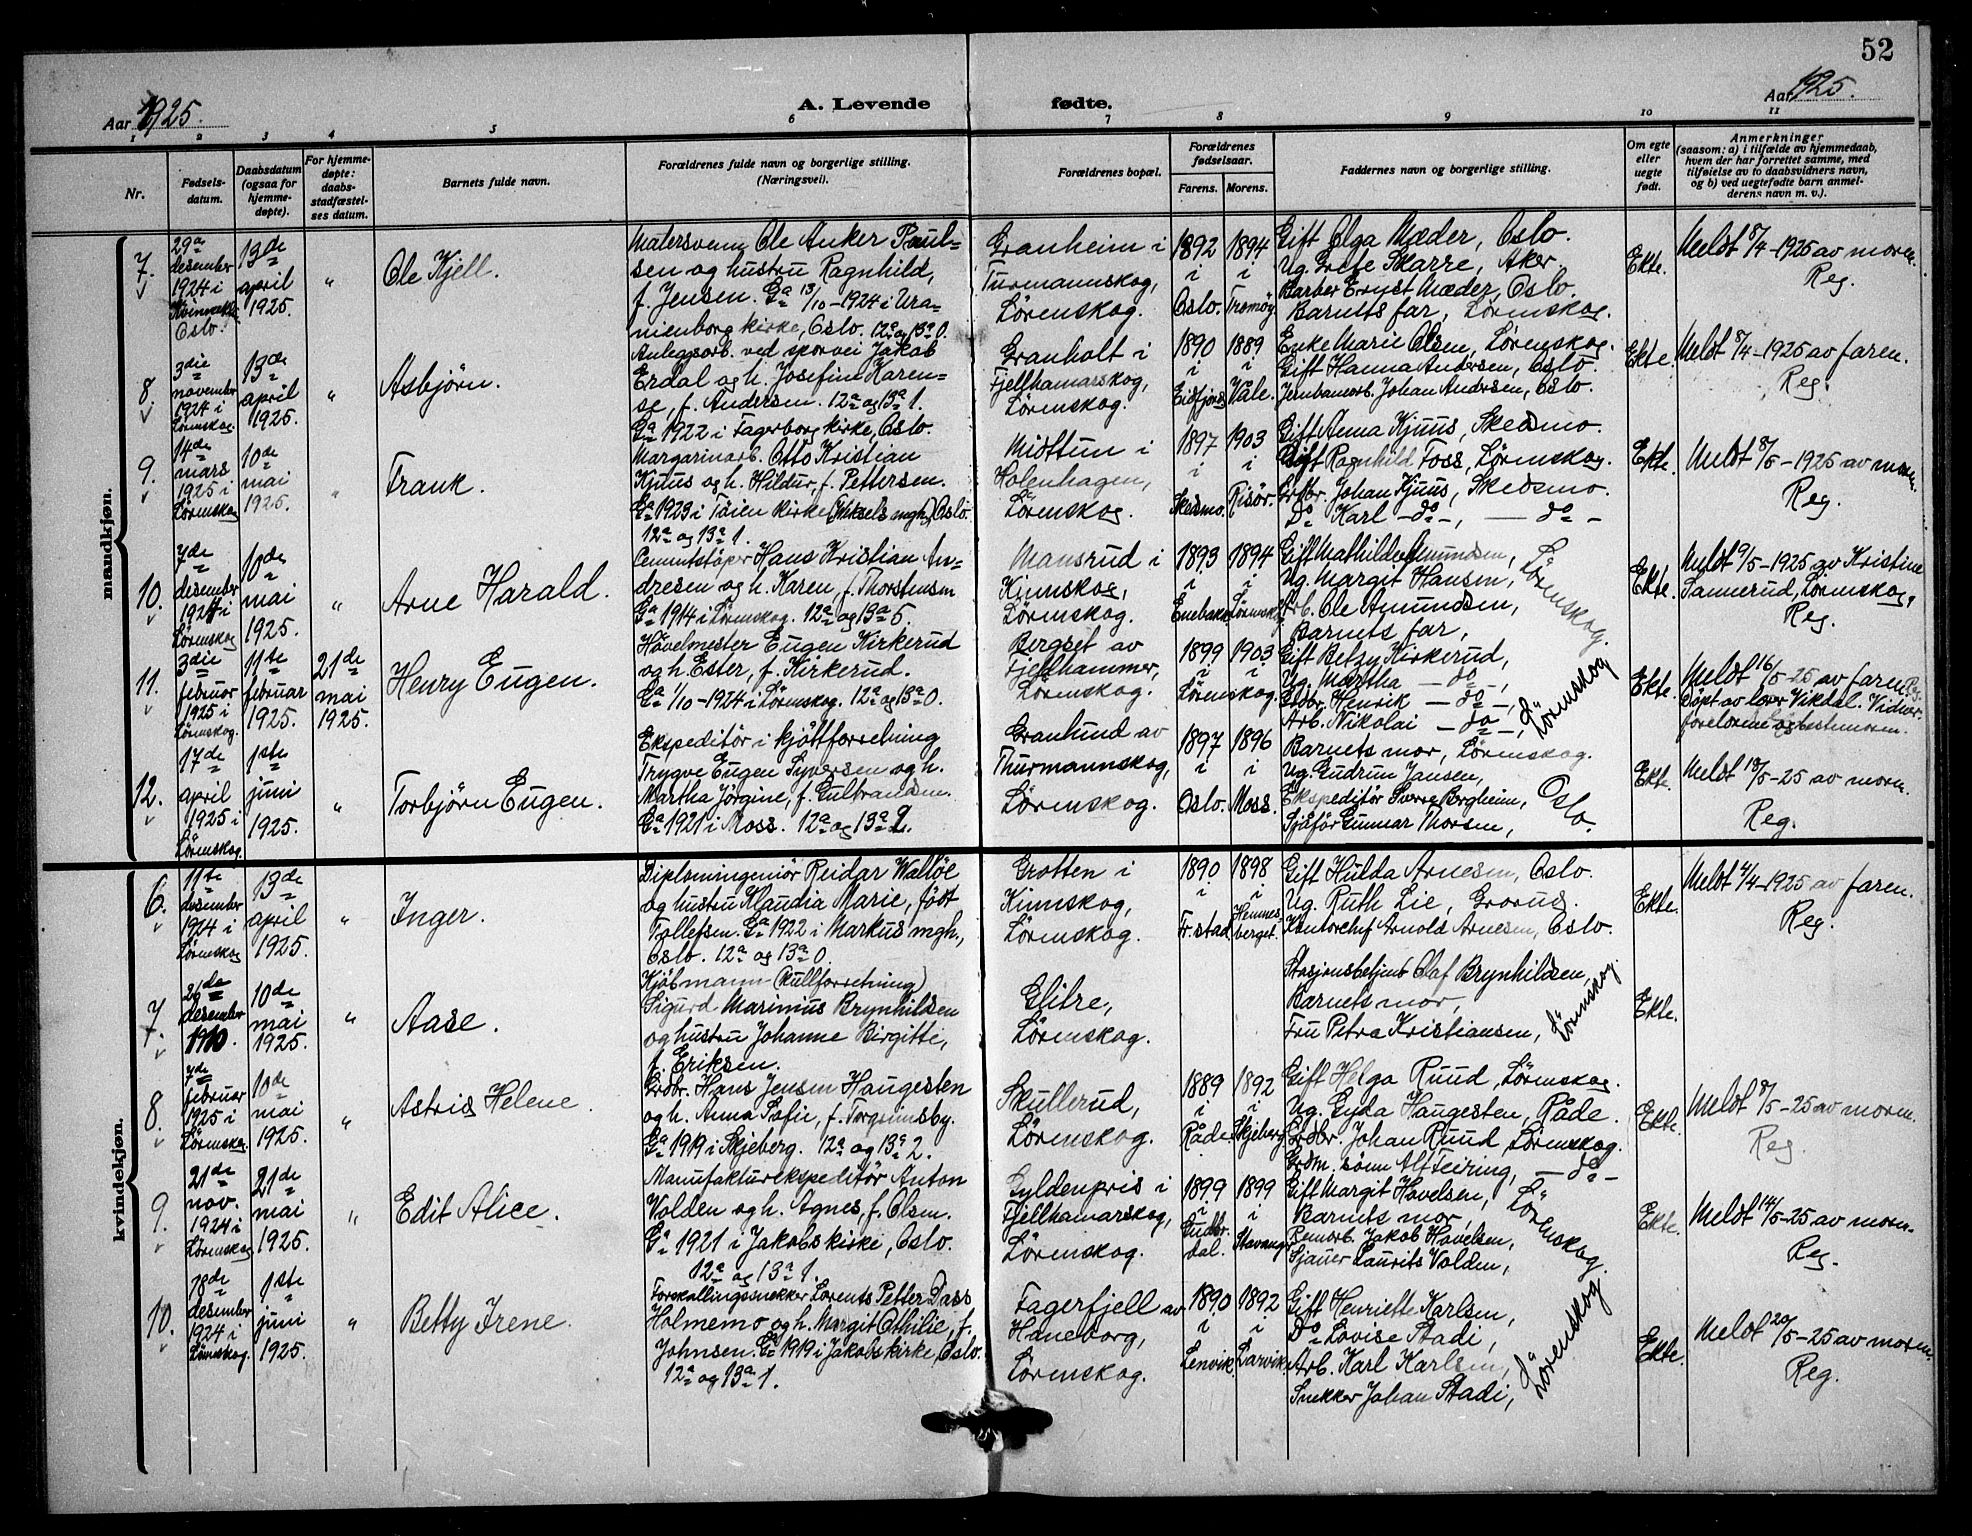 52
Aar 1925.
A. Levende fødte.
Aar 1925.
1 2 3 4 5 6 7 8 9 10 11
Nr.
Fødsels-
datum.
Daabsdatum
(ogsaa for
hjemme-
døpte).
For hjemme-
døpte:
daabs-
stadfæstel-
ses datum.
Barnets fulde navn.
Forældrenes fulde navn og borgerlige stilling.
(Næringsvei).
Forældrenes bopæl.
Forældrenes
fødselsaar.
Farens. Morens.
Faddernes navn og borgerlige stilling.
Om egte
eller
uegte
født.
Anmerkninger
(saasom: a) i tilfælde av hjemmedaab,
hvem der har forrettet samme, med
tilføielse av to daabsvidners navn,
og b) ved uegtefødte barn anmel-
derens navn m. v.).
mandkjøn.
7.
29de
desember
1924 i
Oslo.
13de
april
1925.
"
Ole Kjell.
Malersvenn Ole Anker Paul-
sen og hustru Ragnhild,
f. Jensen. Ga 13/10-1924 i Ura-
nienborg kirke, Oslo. 12a og 13a 0.
Granheim i
Turmannskog,
Lörenskog.
1892
i
Oslo.
1894
i
Tromöy
Gift Olga Mæder, Oslo.
Ug. Grete Skarre, Aker.
Barber Ernst Mæder, Oslo,
Barnets far, Lörenskog.
Ekte.
Meldt 8/4-1925 av moren.
Reg.
8.
3die
november
1924 i
Lörenskog.
13de
april
1925.
"
Asbjörn.
Anleggsarb. ved sporvei Jakob
Erdal og h. Josefine Karen-
se, f. Andersen. 12a og 13a 1.
Ga 1922 i Fagerborg kirke, Oslo.
Granholt i
Fjellhamarskog,
Lörenskog.
1890
i
Eidfjord
1889
i
Våle.
Enke Marie Olsen, Lörenskog.
Gift Hanna Andersen, Oslo.
Jernbanearb. Johan Andersen, Oslo.
Ekte.
Meldt 8/4-1925 av faren.
Reg.
9.
14de
mars
1925 i
Lörenskog
10de
mai
1925.
"
Frank.
Margarinarb. Otto Kristian
Kjuus og h. Hildur, f. Pettersen.
Ga 1923 i Töien kirke (Mikaels mgh.) Oslo.
12a og 13a 1.
Midttun i
Holenhagen,
Lörenskog.
1897
i
Skedsmo.
1903
i
Risör.
Gift Anna Kjuus, Skedsmo.
Gift Ragnhild Foss, Lörenskog.
Grdbr. Johan Kjuus, Skedsmo.
Do Karl -do-, -do-
Ekte.
Meldt 8/5-1925 av moren.
Reg.
10.
7de
desember
1924 i
Lörenskog
10de
mai
1925.
"
Arne Harald.
Cementstöper Hans Kristian An-
dresen og h. Karen, f. Thorstensen
Ga 1914 i Lörenskog. 12a og 13a 5.
Mansrud i
Kinnskog,
Lörenskog.
1893
i
Enebakk
1894
i
Lörenskog
Gift Mathilde Amundsen,
Ug. Margit Hansen,
Arb. Ole Amundsen,
Barnets far,
Lörenskog.
Ekte.
Meldt 9/5-1925 av Kristine
Sannerud, Lörenskog,
Reg.
11.
3die
februar
1925 i
Lörenskog.
11te
februar
1925.
21de
mai
1925.
Henry Eugen.
Hövelmester Eugen Kirkerud
og h. Ester, f. Kirkerud.
Ga 1/10-1924 i Lörenskog. 12a og 13a 0.
Bergset av
Fjellhammer,
Lörenskog.
1899
i
Lörenskog
1903
i
Gift Betzy Kirkerud,
Ug. Martha -do-,
Grdbr. Henrik -do-,
Arb. Nikolai -do-,
Lörenskog
Ekte.
Meldt 16/5-25 av faren. Reg.
Döpt av lærer Vikdal. Vidner:
foreldrene og bestemoren.
12.
17de
april
1925 i
Lörenskog.
1ste
juni
1925.
"
Torbjörn Eugen.
Ekspeditör i kjöttforretning
Trygve Eugen Syversen og h.
Martha Jörgine, f. Gulbrandsen.
Ga 1921 i Moss. 12a og 13a 2.
Granlund av
Thurmannskog,
Lörenskog.
1897
i
Oslo.
1896
i
Moss.
Barnets mor, Lörenskog.
Ug. Gudrun Jansen,
Ekspeditör Sverre Bergheim,
Sjåför Gunnar Thorsen,
Oslo.
Ekte.
Meldt 18/5-25 av moren.
Reg.
kvindekjøn.
6.
11te
desember
1924 i
Lörenskog
13de
april
1925.
"
Inger.
Diplomingeniör Reidar Wallöe
og hustru Klaudia Marie, födt
Tollefsen. Ga 1922 i Markus mgh.,
Oslo. 12a og 13a 0.
Grotten i
Kinnskog,
Lörenskog.
1890
i
Fr.stad
1898
i
Hemnes-
berget.
Gift Hulda Arnesen, Oslo.
Ug. Ruth Lie, Grorud.
Kontorchef Arnold Arnesen, Oslo.
Ekte.
Meldt 4/4-1925 av faren.
Reg.
7.
26de
desember
1910.
10de
mai
1925.
"
Aase.
Kjöbmann (kullforretning)
Sigurd Marinius Brynhildsen
og hustru Johanne Birgitte,
f. Eriksen.
Glitre,
Lörenskog.
Stasjonsbetjent Olaf Brynhildsen,
Barnets mor,
Fru Petra Kristiansen,
Lörenskog.
Ekte.
8.
7de
februar
1925 i
Lörenskog
10de
mai
1925.
"
Astrid Helene.
Grdbr. Hans Jensen Haugesten
og h. Anna Sofie, f. Torgunnsby.
Ga 1919 i Skjeberg. 12a og 13a 2.
Skullerud,
Lörenskog.
1889
i
Råde
1892
i
Skjeberg
Gift Helga Ruud, Lörenskog.
Ug. Gyda Haugesten, Råde.
Grdbr. Johan Ruud Lörenskog.
Grdm. sönn Alf Feiring, -do-
Ekte.
Meldt 8/5-25 av moren.
Reg.
9.
21de
nov.
1924 i
Lörenskog
21de
mai
1925.
"
Edit Alice.
Manufakturekspeditör Anton
Volden og h. Agnes, f. Olsen.
Ga 1921 i Jakobs kirke, Oslo.
12a og 13a 1.
Gyldenpris i
Fjellhamarskog,
Lörenskog.
1899
i
Gudbr.
dal.
1899
i
Stavanger
Gift Margit Hovelsen,
Barnets mor,
Remarb. Jakob Hovelsen,
Sjauer Laurits Volden,
Lörenskog.
Ekte.
Meldt 14/5-25 av moren.
Reg.
10.
18de
desember
1924 i
Lörenskog.
1ste
juni
1925.
"
Betty Irene.
Forskallingssnekker Lorents Petter Dass
Holmemo og h. Margit Othilie, f.
Johnsen. Ga 1919 i Jakobs kirke, Oslo.
12a og 13a 1.
Fagerfjell av
Haneborg,
Lörenskog.
1890
i
Lenvik.
1892
i
Larvik.
Gift Henriette Karlsen,
Do Lovise Stadi,
Arb. Karl Karlsen,
Snekker Johan Stadi,
Lörenskog
Ekte.
Meldt 20/5-25 av moren.
Reg.